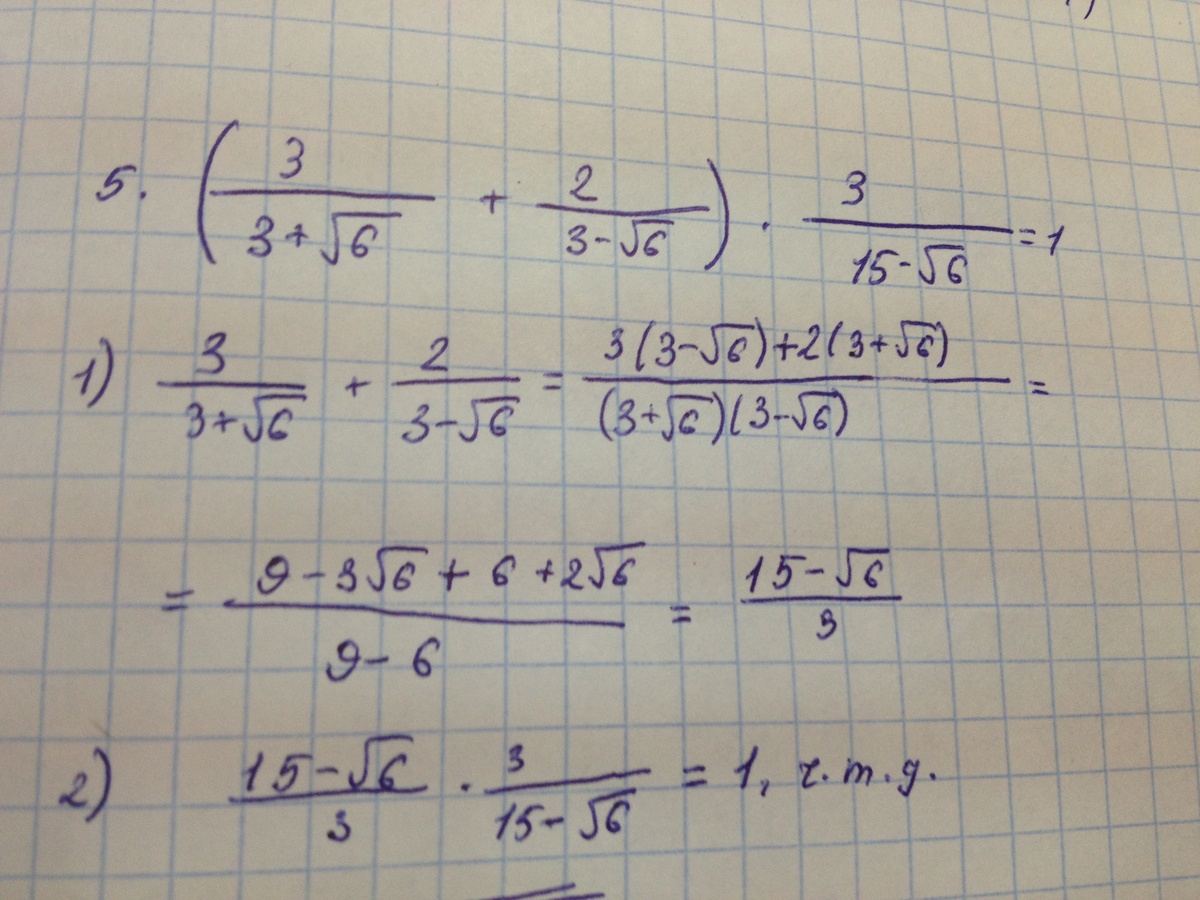 5. (3/(3+√6) + 2/(3-√6)) · 3/(15-√6) = 1
1) 3/(3+√6) + 2/(3-√6) = (3(3-√6)+2(3+√6))/((3+√6)(3-√6)) =
= (9-3√6+6+2√6)/(9-6) = (15-√6)/3
2) (15-√6)/3 · 3/(15-√6) = 1, ч.т.д.